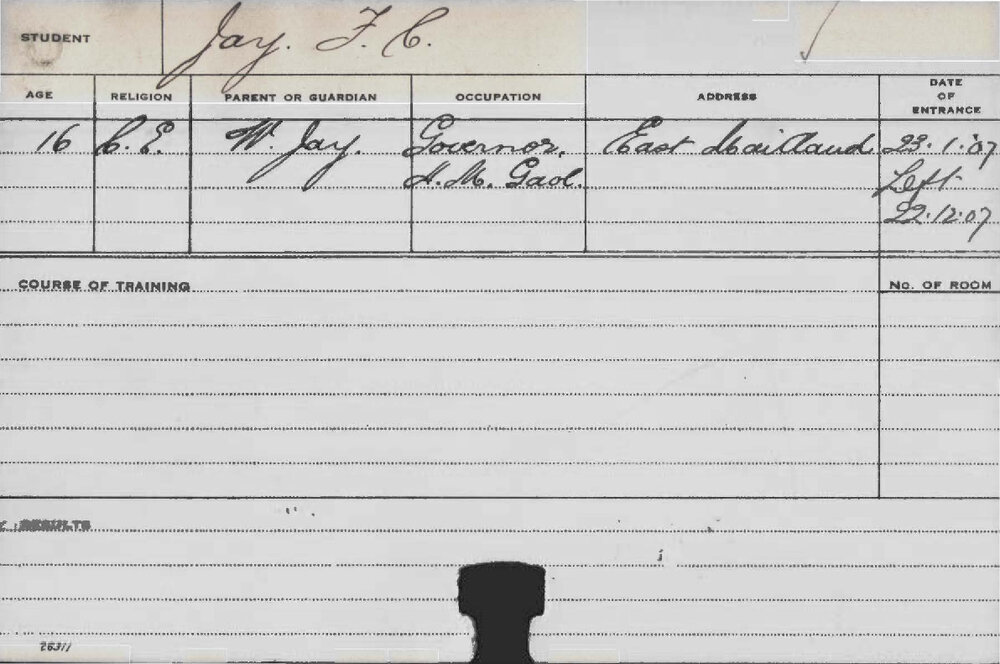 STUDENT Jay. F. C.
AGE RELIGION PARENT OR GUARDIAN OCCUPATION ADDRESS DATE OF ENTRANCE
16 C. E. W. Jay. Governor, East Maitland 23.1.07
H. M. Gaol. Left
22.12.07
COURSE OF TRAINING No. OF ROOM
RESULTS
26311